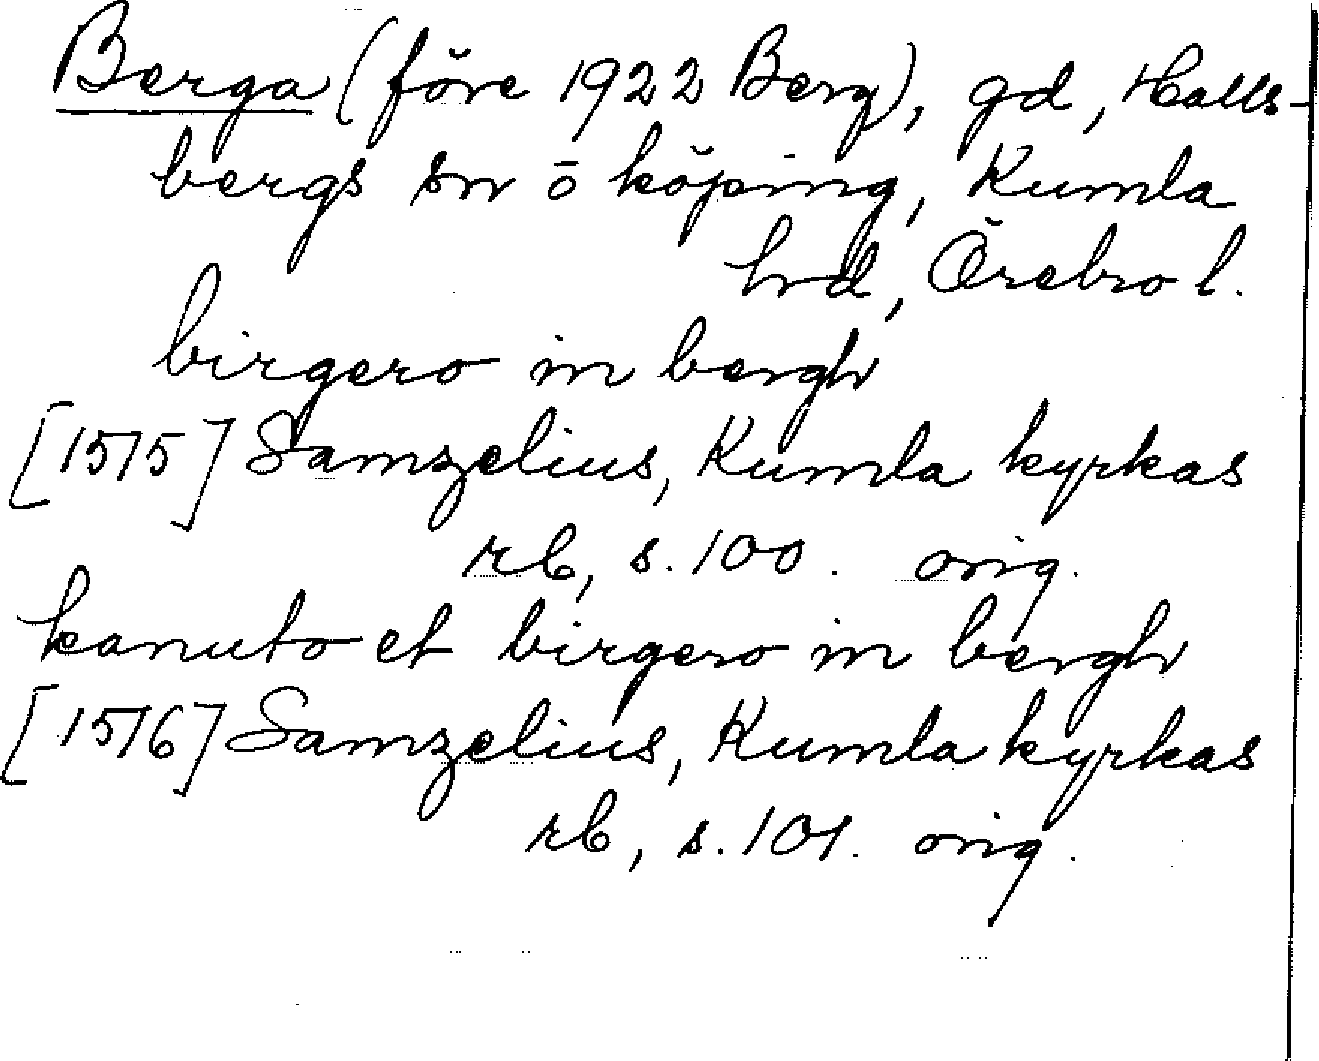 Berga (före 1922 Berg), gd, Halls-
bergs sn ō köping, Kumla
hrd, Örebro l.
birgero in bergh
[1515] Samzelius, Kumla kyrkas
rb, s. 100. orig.
kanuto et birgero in bergh
[1516] Samzelius, Kumla kyrkas
rb, s. 101. orig.